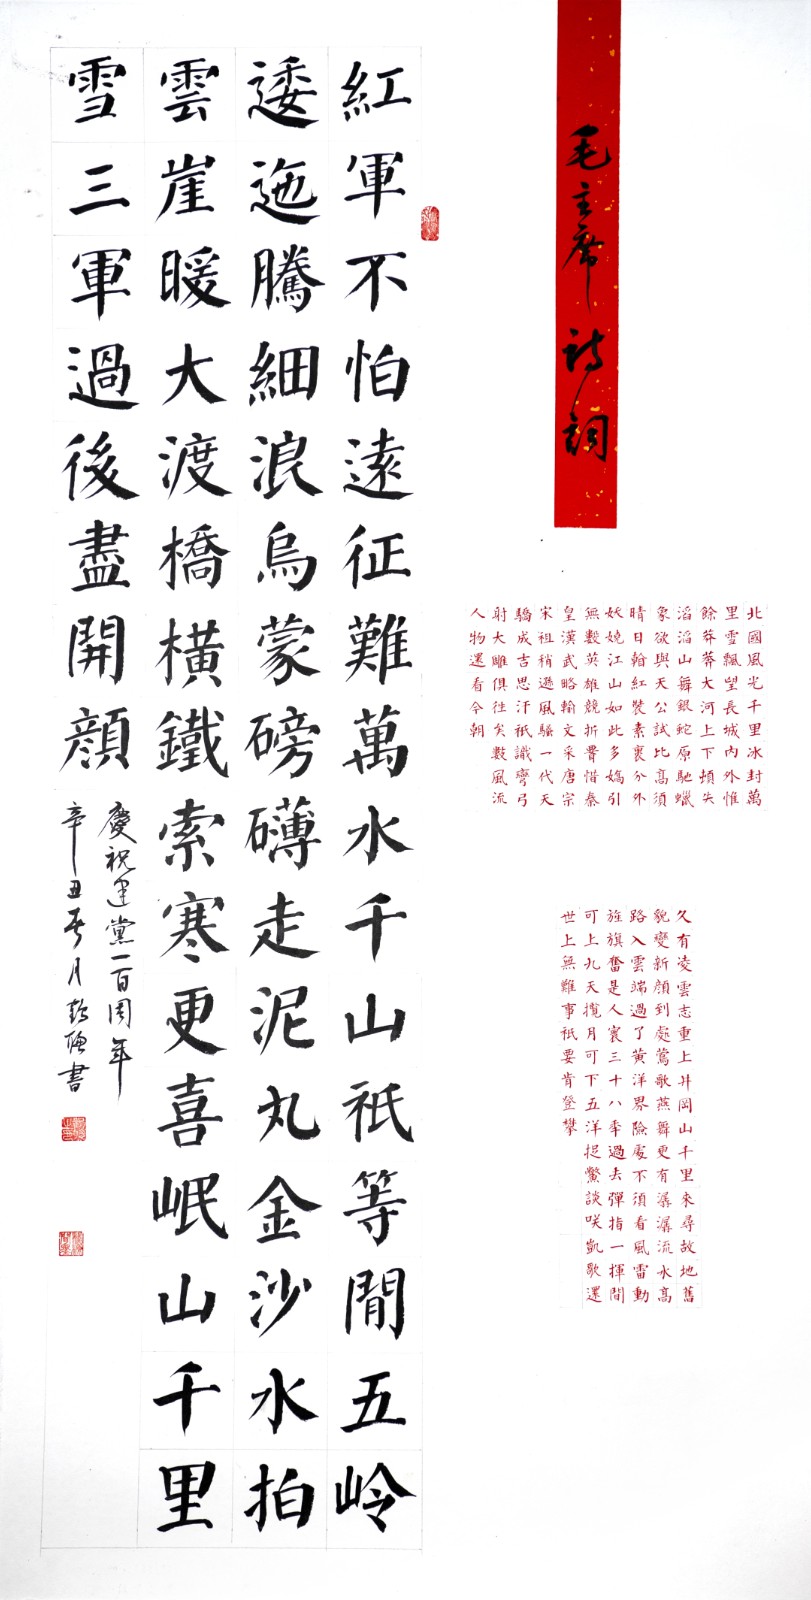 毛主席詩詞
北國風光千里冰封萬
里雪飄望長城內外惟
餘莽莽大河上下頓失
滔滔山舞銀蛇原馳蠟
象欲與天公試比高須
晴日翰紅裝素裹分外
妖嬈江山如此多嬌引
無數英雄競折腰惜秦
皇漢武略輸文采唐宗
宋祖稍遜風騷一代天
驕成吉思汗祇識彎弓
射大雕俱往矣數風流
人物還看今朝
久有凌雲志重上井岡山千里來尋故地舊
貌變新顏到處鶯歌燕舞更有潺潺流水高
路入雲端過了黃洋界險處不須看風雷動
旌旗奮是人寰三十八年過去彈指一揮間
可上九天攬月可下五洋捉鱉談咲凱歌還
世上無難事祇要肯登攀
紅軍不怕遠征難萬水千山祇等閒五岭
逶迤騰細浪烏蒙磅礴走泥丸金沙水拍
雲崖暖大渡橋橫鐵索寒更喜岷山千里
雪三軍過後盡開顏
慶祝建黨一百周年
辛丑夏月彭書